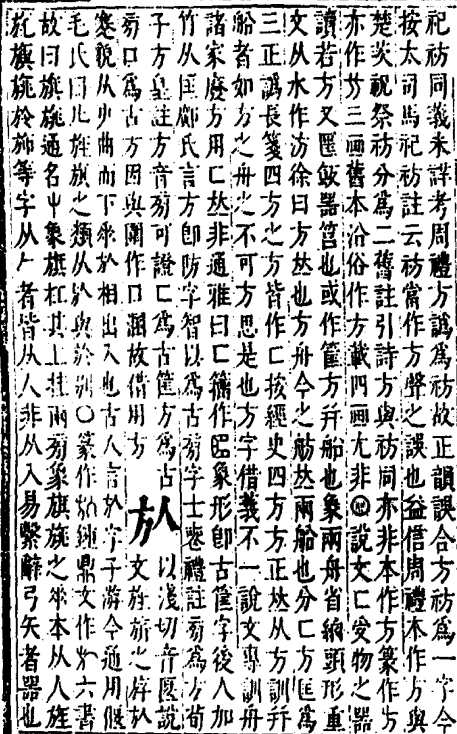 祀祊同義未詳考周禮方譌為祊故正韻誤合方祊為一字今
按大司馬祀祊註云祊當作方聲之誤也益信周禮本作方與
楚茨祝祭祊分為二舊註引詩方與祊同亦非本作方篆作方
亦作芀三画舊本沿俗作方載四画尢非 說文匸受物之器
讀若方又匯㪺器筥也或作筐方幷船也象兩舟省緫頭形重
文从水作汸徐曰方㳒也方舟今之舫㳒兩船也分匸方匡為
三正譌長箋四方之方皆作匸按經史四方方正㳒从方訓幷
船者如方之舟之不可方思是也方字借義不一說文專訓舟
諸家廢方用匸㳒非通雅曰匸籀作象形即古筐字後人加
竹从匡鄺氏言方卽防字智以為古旁字士喪禮註旁為方荀
子方皇註方音旁可證匸為古筐方為古
旁口為古方圓與圍作口溷故借用方
㫃 以淺切音偃說
文旌旂之㳺㫃
蹇貌从屮曲而下垂㫃相出入也古人言㫃字子游今通用偃
毛氏曰凡旌旗之類从㫃與於別○篆作㫃鐘鼎文作六書
故曰旗旒通名屮象旗杠其上挂兩旁象旗旒之垂本从人旌
旄旗旐旍旆等字从𠂉者皆从人非从入易繫辭弓矢者器也